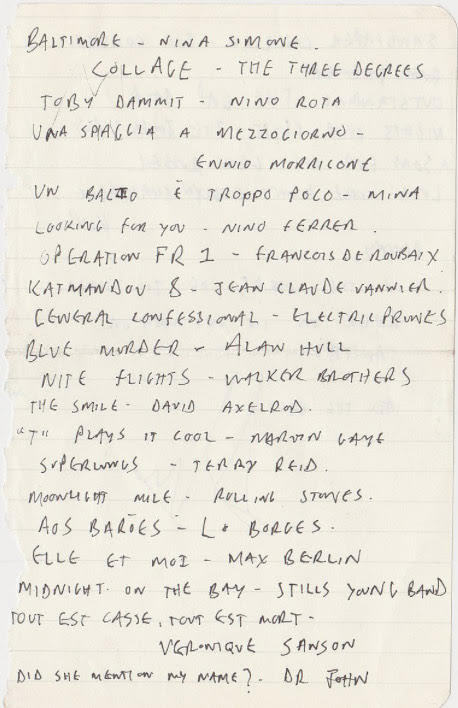 BALTIMORE - NINA SIMONE.
COLLAGE - THE THREE DEGREES
TOBY DAMMIT - NINO ROTA
UNA SPAGGIA A MEZZOGIORNO -
ENNIO MORRICONE
UN BACIO È TROPPO POCO - MINA
LOOKING FOR YOU - NINO FERRER.
OPERATION FR 1 - FRANCOIS DE ROUBAIX
KATMANDOU 8 - JEAN CLAUDE VANNIER.
GENERAL CONFESSIONAL - ELECTRIC PRUNES
BLUE MURDER - ALAN HULL
NITE FLIGHTS - WALKER BROTHERS
THE SMILE - DAVID AXELROD.
"T" PLAYS IT COOL - MARVIN GAYE
SUPERLUNGS - TERRY REID.
MOONLIGHT MILE - ROLLING STONES.
AOS BARÕES - Lô BORGES.
ELLE ET MOI - MAX BERLIN
MIDNIGHT ON THE BAY - STILLS YOUNG BAND
TOUT EST CASSE, TOUT EST MORT -
VERONIQUE SANSON
DID SHE MENTION MY NAME?. DR JOHN